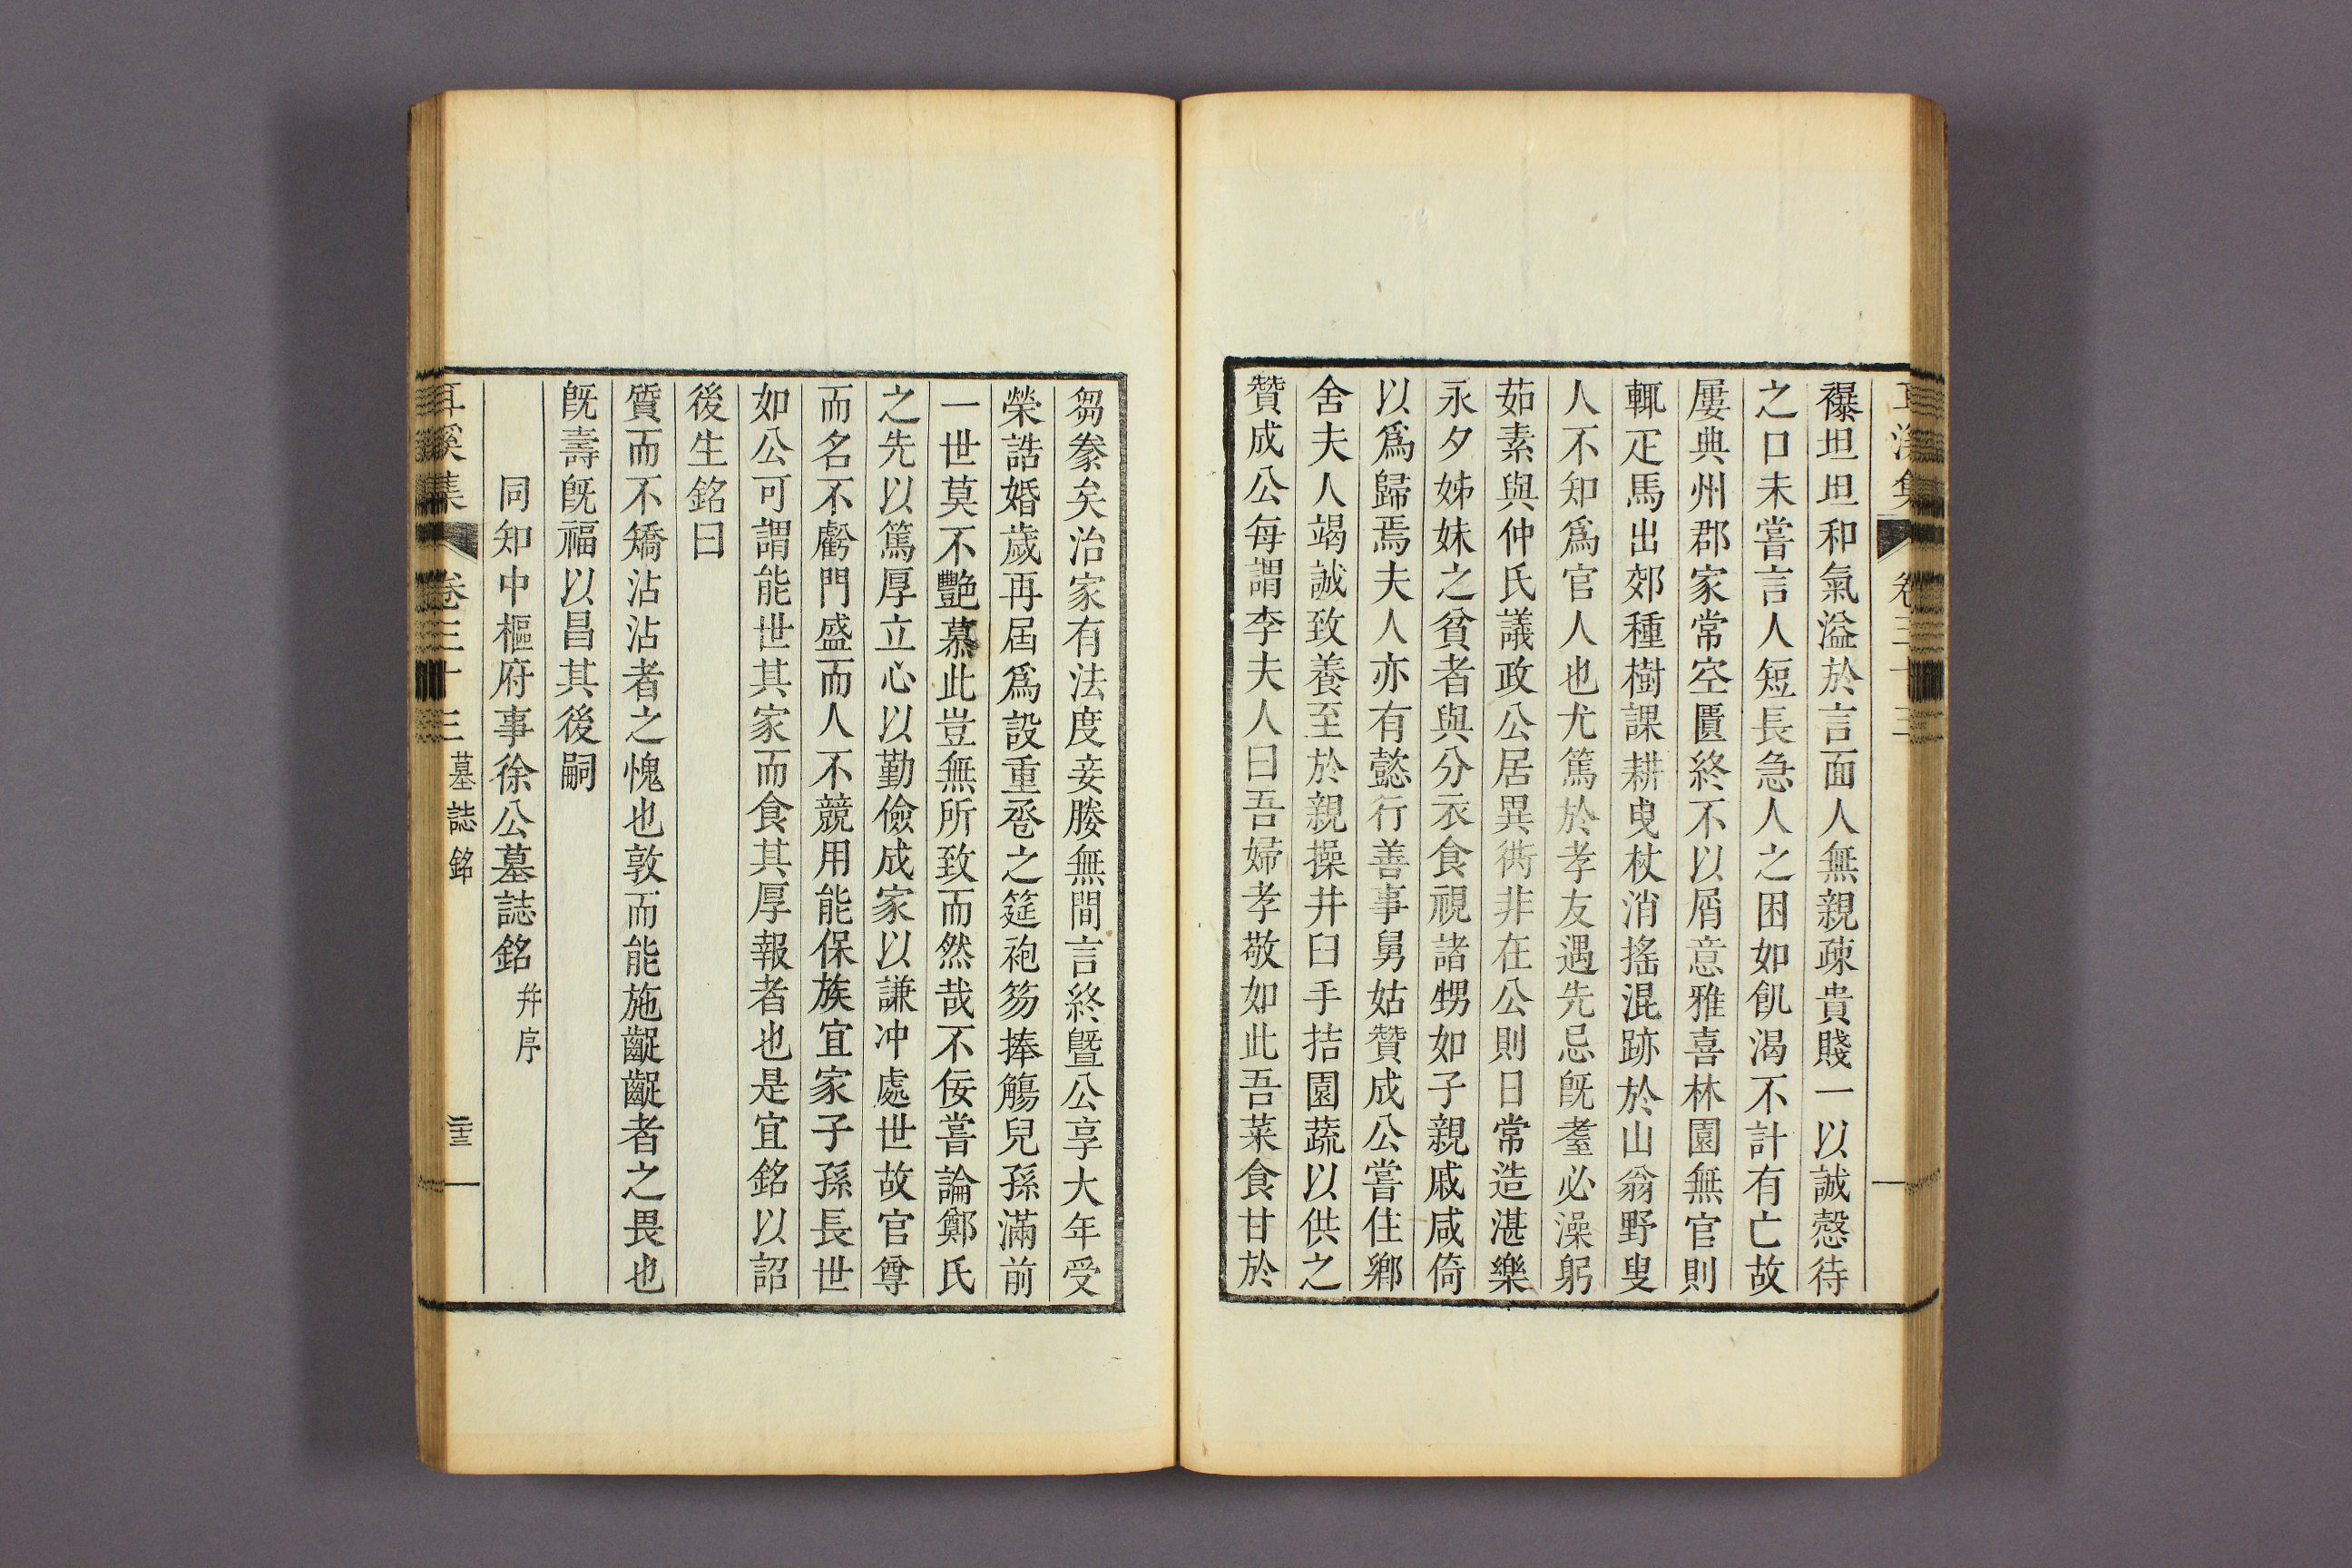 襮坦坦和氣溢於言面人無親疎貴賤一以誠慤待
之口未嘗言人短長急人之困如飢渴不計有亡故
屢典州郡家常空匱終不以屑意雅喜林園無官則
輒疋馬出郊種樹課耕曳杖消搖混跡於山翁野叟
人不知爲官人也尤篤於孝友遇先忌旣耋必澡躬
茹素與仲氏議政公居異衖非在公則日常造湛樂
永夕姊妹之貧者與分衣食視諸甥如子親戚咸倚
以爲歸焉夫人亦有懿行善事舅姑贊成公嘗住鄕
舍夫人竭誠致養至於親操井臼手拮園蔬以供之
贊成公每謂李夫人曰吾婦孝敬如此吾菜食甘於
芻豢矣治家有法度妾媵無間言終曁公享大年受
榮誥婚歲再屆爲設重巹之筵袍笏捧觴兒孫滿前
一世莫不艷慕此豈無所致而然哉不佞嘗論鄭氏
之先以篤厚立心以勤儉成家以謙冲處世故官尊
而名不虧門盛而人不競用能保族宜家子孫長世
如公可謂能世其家而食其厚報者也是宜銘以詔
後生銘曰
質而不矯沾沾者之愧也敦而能施齪齪者之畏也
旣壽旣福以昌其後嗣
同知中樞府事徐公墓誌銘 幷序
耳溪集 卷三十三 墓誌銘